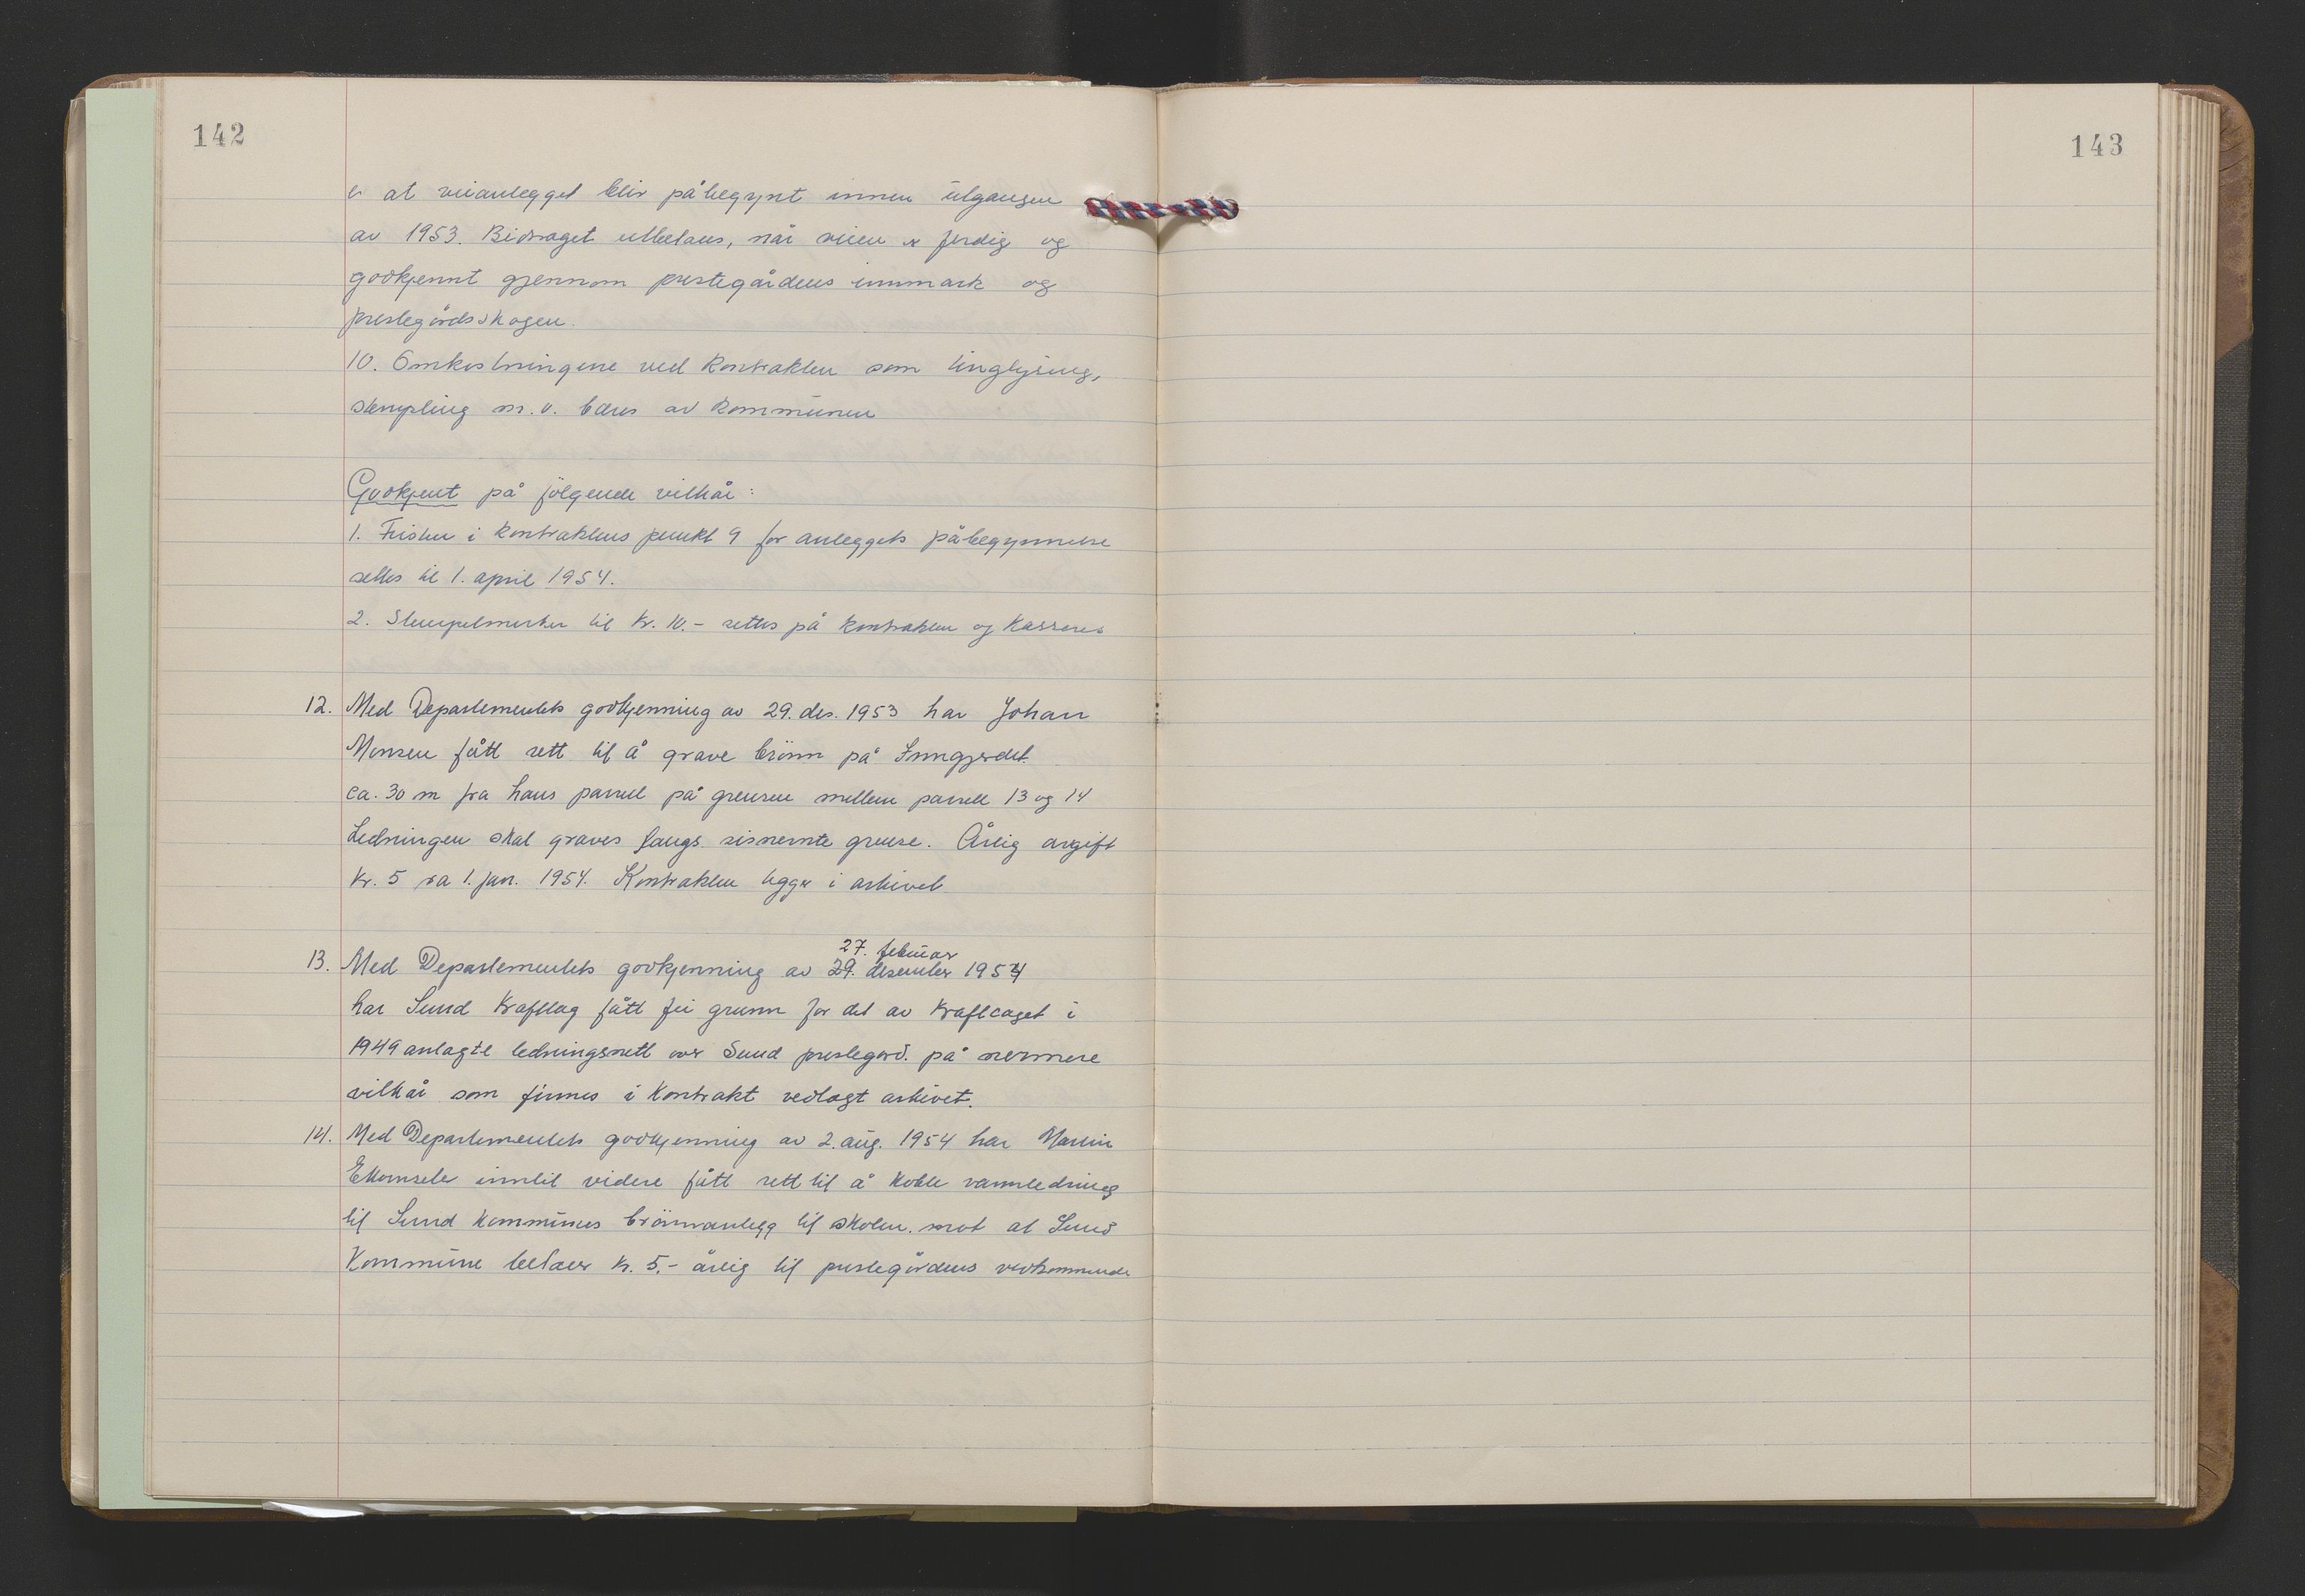 142
143
er at veianlegget blir påbegynt innen utgangen
av 1953. Bidraget utbetales, når veien er ferdig og
godkjennt gjennom prestegårdens innmark og
prestegårdsskogen.
10. Omkostningene ved kontrakten som tinglysing,
stempling m.v. bæres av kommunen
Godkjent på følgende vilkår:
1. Fristen i kontraktens punkt 9 for anleggets påbegynnelse
settes til 1. april 1954.
2. Stempelmerker til kr. 10.- settes på kontrakten og kasseres
12. Med Departementets godkjenning av 29. des. 1953 har Johan
Monsen fått rett til å grave brönn på Inngjerdet
ca. 30 m fra hans parsell på grensen mellem parsell 13 og 14
Ledningen skal graves langs sisnemte grense. Årlig avgift
kr. 5 fra 1. jan. 1954. Kontrakten ligger i arkivet
27. februar
13. Med Departementets godkjenning av 29. desember 1954
har Sund Kraftlag fått fri grunn for det av kraftlaget i
1949 anlagte ledningsnett over Sund prestegård. på nermere
vilkår som finnes i kontrakt vedlagt arkivet.
14. Med Departementets godkjenning av 2. aug. 1954 har Martin
inntil videre fått rett til å koble vannledning
til Sund kommunes brönnanlegg til skolen. mot at Sund
Kommune betaler kr. 5.- årlig til prestegårdens vedkommende